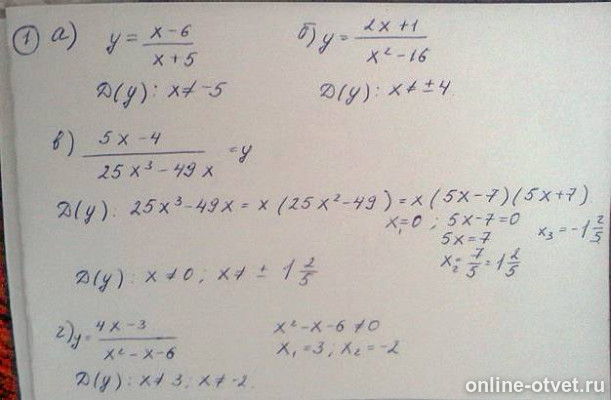 ① а) y = (x-6)/(x+5)   б) y = (2x+1)/(x²-16)
Д(y): x ≠ -5   Д(y): x ≠ ±4
в) (5x-4)/(25x³-49x) = y
Д(y): 25x³-49x = x(25x²-49) = x(5x-7)(5x+7)
x₁=0; 5x-7=0   x₃=-1 2/5
5x=7
x₂=7/5=1 2/5
Д(y): x ≠ 0; x ≠ ± 1 2/5
г) y = (4x-3)/(x²-x-6)   x²-x-6 ≠ 0
x₁=3; x₂=-2
Д(y): x ≠ 3; x ≠ -2.
online-otvet.ru